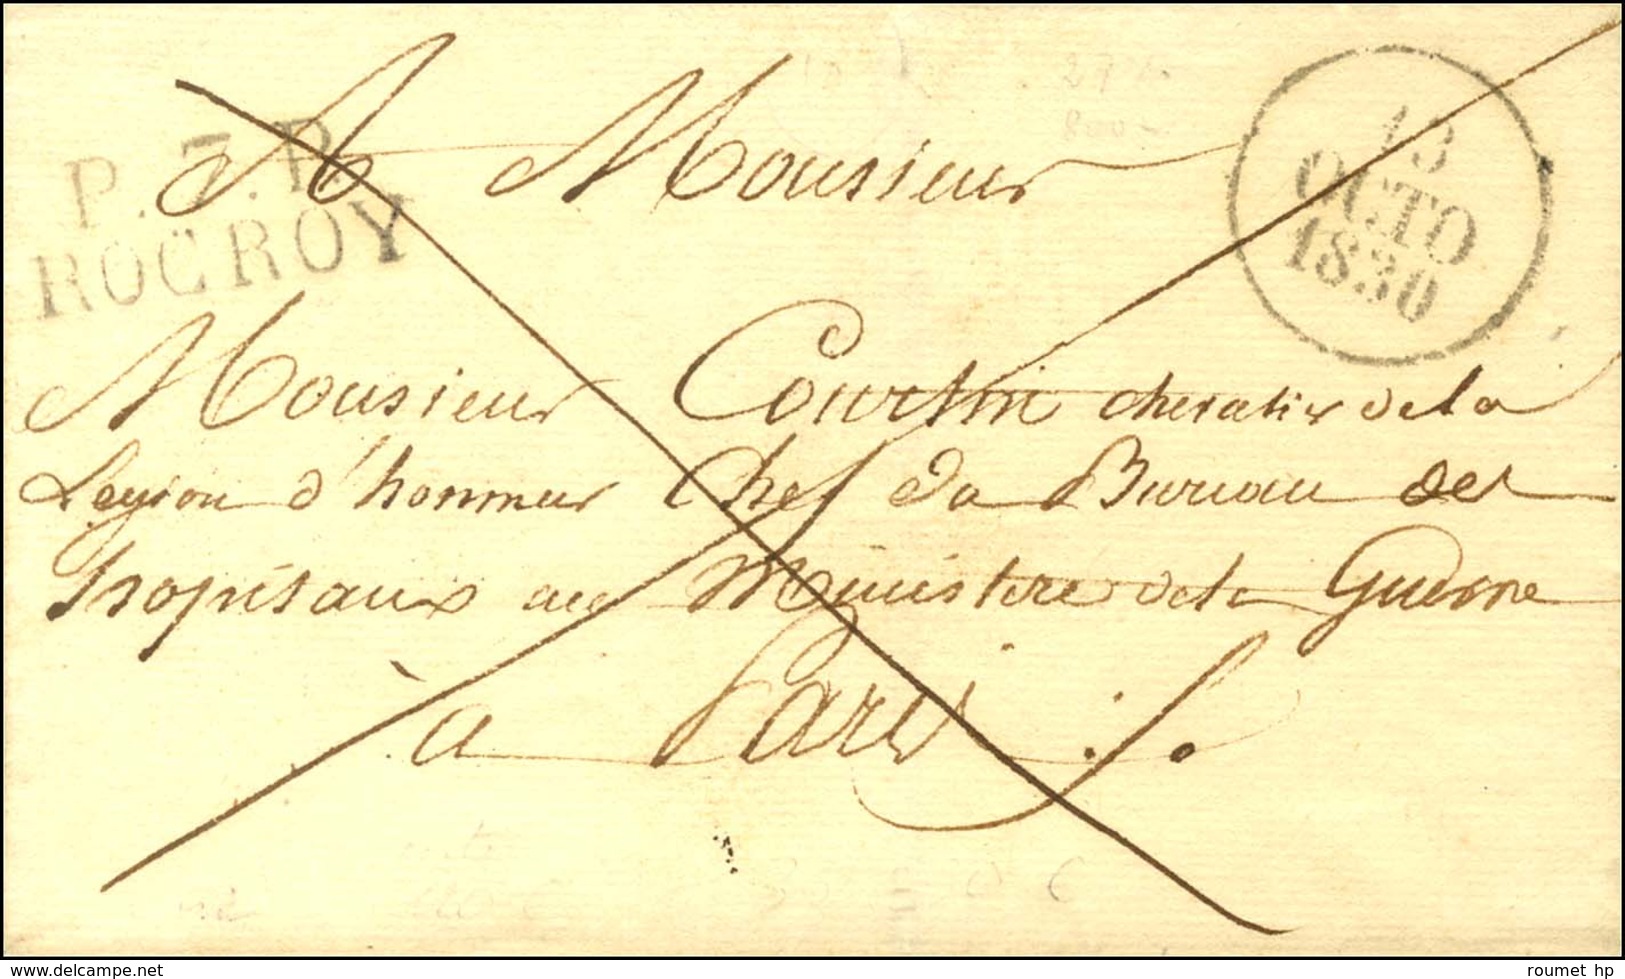 P. 7. P.
ROCROY
13
OCTO
1830
A Monsieur
Monsieur Courtin chevalier de la
Legion d'honneur Chef du Bureau des
hopitaux au Ministere de la Guerre
à Paris
www.delcampe.net
roumet hp